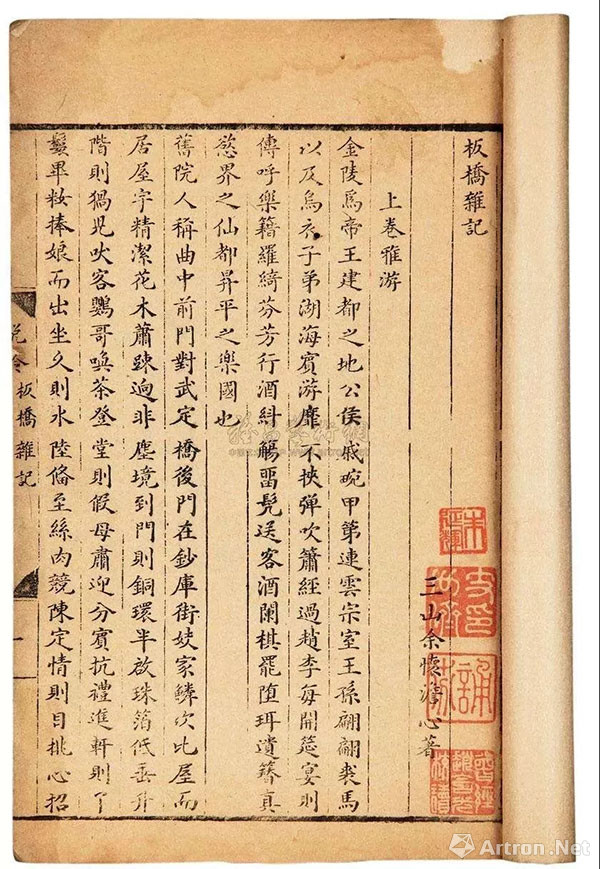 板橋雜記
三山余懷澹心著
上卷雅游
金陵爲帝王建都之地公侯戚畹甲第連雲宗室王孫翩翩裘馬
以及烏衣子弟湖海賓游靡不挾彈吹簫經過趙李每開筵宴則
傳呼樂籍羅綺芬芳行酒糾觴畱髠送客酒闌棋罷堕珥遺簪真
慾界之仙都昇平之樂國也
舊院人稱曲中前門對武定橋後門在鈔庫街妓家鱗次比屋而
居屋宇精潔花木蕭踈逈非塵境到門則銅環半啟珠箔低垂升
階則猧兒吠客鸚哥喚茶登堂則假母肅迎分賓抗禮進軒則丫
鬟畢粧捧娘而出坐久則水陸備至絲肉競陳定情則目挑心招
板橋雜記
一
Artron.Net